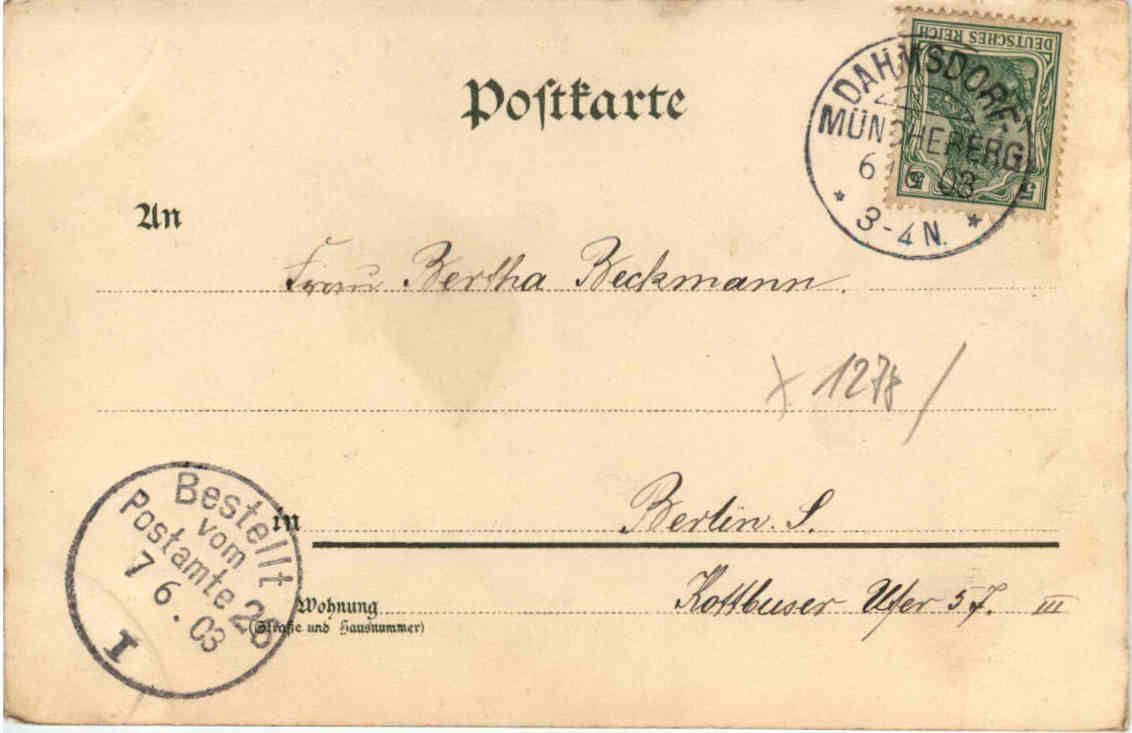 DEUTSCHES REICH
5 5
DAHMSDORF-
MÜNCHEBERG
03
3-4 N.
Postkarte
An
Frau Bertha Beckmann.
1278
in Berlin. S.
Wohnung Kottbuser Ufer 57. III
(Straße und Hausnummer)
Bestellt
vom
Postamte 26
7 6. 03
I